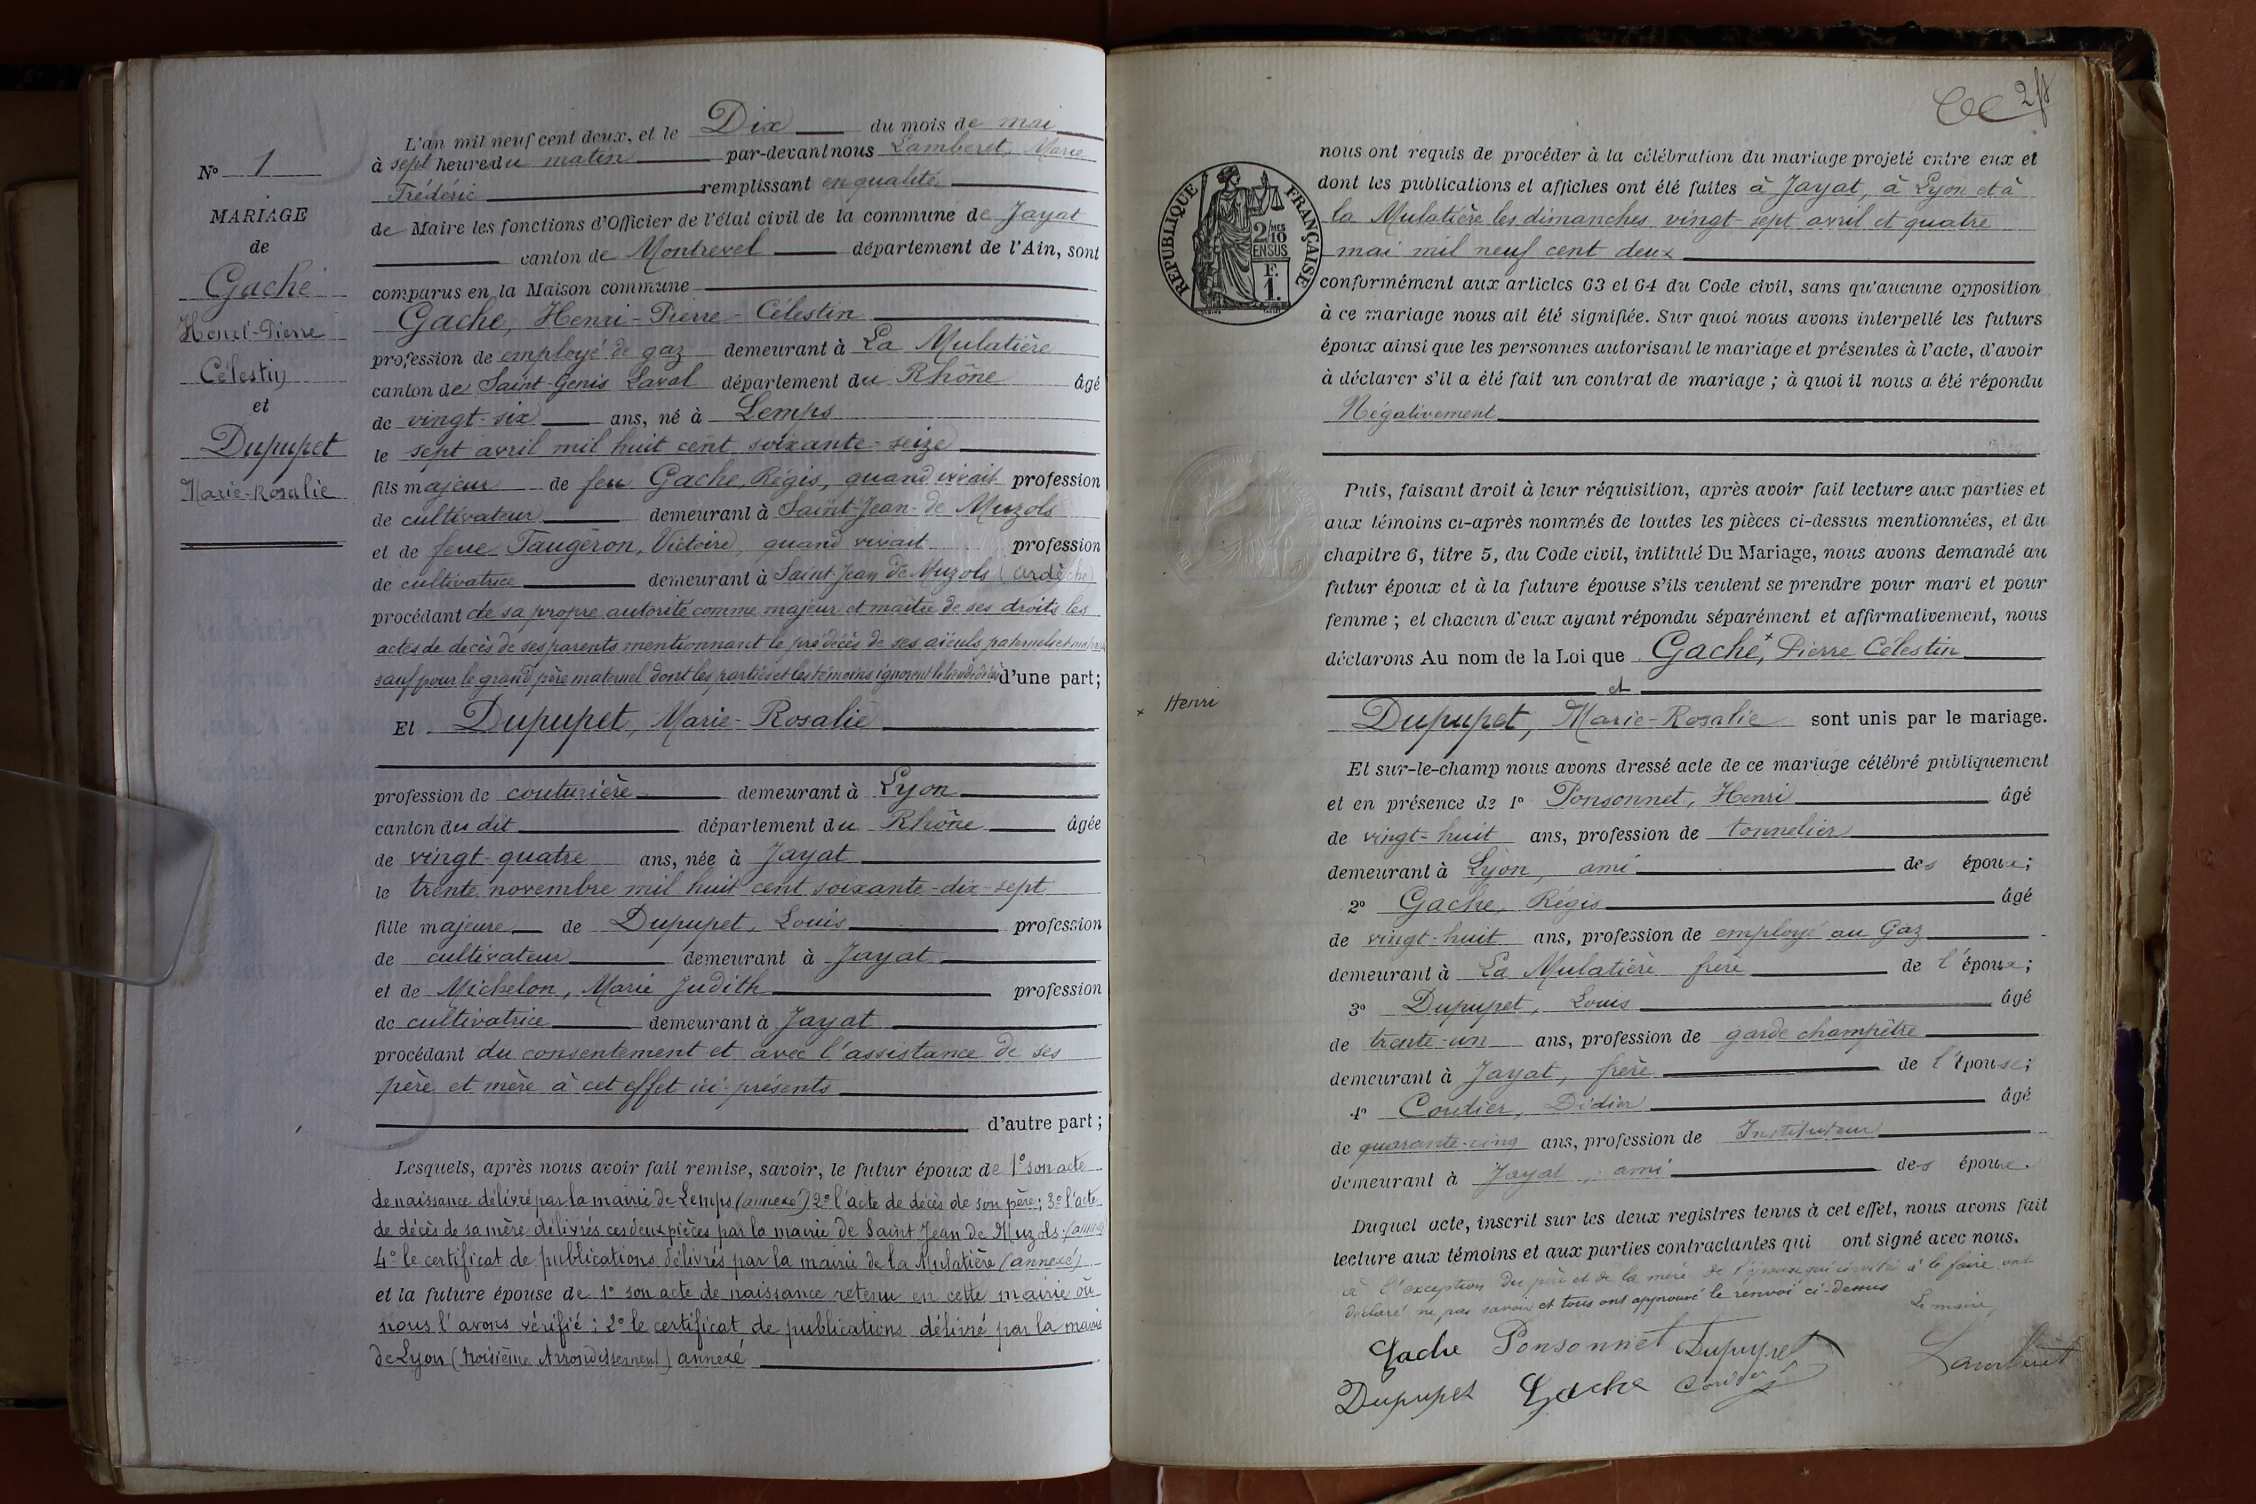 N° 1
MARIAGE
de
Gache
Henri-Pierre
Célestin
et
Dupupet
Marie-Rosalie
L'an mil neuf cent deux, et le Dix du mois de mai
à sept heure du matin par-devant nous Lamberet, Marie
Frédéric remplissant en qualité
de Maire les fonctions d'Officier de l'état civil de la commune de Jayat
canton de Montrevel département de l'Ain, sont
comparus en la Maison commune
Gache, Henri-Pierre-Célestin
profession de employé de gaz demeurant à La Mulatière
canton de Saint-Genis Laval département du Rhône âgé
de vingt-six ans, né à Lemps
le sept avril mil huit cent soixante-seize
fils majeur de feu Gache, Régis, quand vivait profession
de cultivateur demeurant à Saint-Jean-de Muzols
et de feue Faugeron, Victoire, quand vivait profession
de cultivatrice demeurant à Saint Jean de Muzols (Ardèche)
procédant de sa propre autorité comme majeur et maître de ses droits les
actes de décès de ses parents mentionnant le prédécès de ses aïeuls paternels et
sauf pour le grand père maternel dont les parties et les témoins ignorent d'une part;
Et Dupupet, Marie-Rosalie
profession de couturière demeurant à Lyon
canton du dit département du Rhône âgée
de vingt-quatre ans, née à Jayat
le trente novembre mil huit cent soixante-dix-sept
fille majeure de Dupupet, Louis profession
de cultivateur demeurant à Jayat
et de Michelon, Marie Judith profession
de cultivatrice demeurant à Jayat
procédant du consentement et avec l'assistance de ses
père et mère à cet effet ici présents
d'autre part;
Lesquels, après nous avoir fait remise, savoir, le futur époux de 1° son acte
de naissance délivré par la mairie de Lemps (annexé) 2° l'acte de décès de son père; 3° l'acte
de décès de sa mère délivrés ces deux pièces par la mairie de Saint Jean de Muzols
4° le certificat de publications délivrés par la mairie de la Mulatière (annexé)
et la future épouse de 1° son acte de naissance retenu en cette mairie où
nous l'avons vérifié; 2° le certificat de publications délivré par la mairie
de Lyon (troisième Arrondissement) annexé
RÉPUBLIQUE FRANÇAISE
2/10
EN SUS
F.
1.
nous ont requis de procéder à la célébration du mariage projeté entre eux et
dont les publications et affiches ont été faites à Jayat, à Lyon et à
la Mulatière les dimanches vingt-sept avril et quatre
mai mil neuf cent deux
conformément aux articles 63 et 64 du Code civil, sans qu'aucune opposition
à ce mariage nous ait été signifiée. Sur quoi nous avons interpellé les futurs
époux ainsi que les personnes autorisant le mariage et présentes à l'acte, d'avoir
à déclarer s'il a été fait un contrat de mariage; à quoi il nous a été répondu
Négativement
Puis, faisant droit à leur réquisition, après avoir fait lecture aux parties et
aux témoins ci-après nommés de toutes les pièces ci-dessus mentionnées, et du
chapitre 6, titre 5, du Code civil, intitulé Du Mariage, nous avons demandé au
futur époux et à la future épouse s'ils veulent se prendre pour mari et pour
femme; et chacun d'eux ayant répondu séparément et affirmativement, nous
déclarons Au nom de la Loi que Gache,x Pierre Célestin
et
x Henri
Dupupet, Marie-Rosalie sont unis par le mariage.
Et sur-le-champ nous avons dressé acte de ce mariage célébré publiquement
et en présence de 1° Ponsonnet, Henri âgé
de vingt-huit ans, profession de tonnelier
demeurant à Lyon, ami des époux;
2° Gache, Régis âgé
de vingt-huit ans, profession de employé au Gaz
demeurant à La Mulatière frère de l'époux;
3° Dupupet, Louis âgé
de trente-un ans, profession de garde champêtre
demeurant à Jayat, frère de l'épouse;
4° Coudier, Didier âgé
de quarante-cinq ans, profession de Instituteur
demeurant à Jayat, ami des époux.
Duquel acte, inscrit sur les deux registres tenus à cet effet, nous avons fait
lecture aux témoins et aux parties contractantes qui ont signé avec nous.
à l'exception du père et de la mère de l'épouse qui invités à le faire ont
déclaré ne pas savoir et tous ont approuvé le renvoi ci-dessus
Le maire,
Gache Ponsonnet Dupupet
Dupupet Gache Coudier Lamberet